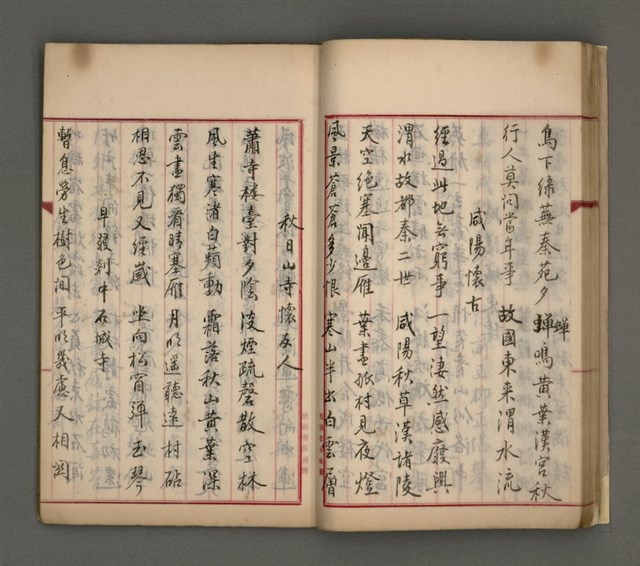 鳥下綠蕪秦苑夕 蟬鳴黃葉漢宮秋
蟬
行人莫问當年事 故國東来渭水流
咸陽懷古
經過此地无窮事 一望淒然感廢興
渭水故都秦二世 咸陽秋草漢諸陵
天空絕塞聞邊雁 葉盡孤村見夜燈
風景蒼蒼多少恨 寒山半出白雲層
秋日山寺懷友人
蕭寺樓臺對夕陰 淡煙疏磬散空林
風生寒渚白蘋動 霜落秋山黃葉深
雲盡獨看晴塞雁 月明遥聽遠村砧
相思不見又經歲 坐向松窗弹玉琴
早發剡中石城寺
暫息勞生樹色间 平明幾慮又相関